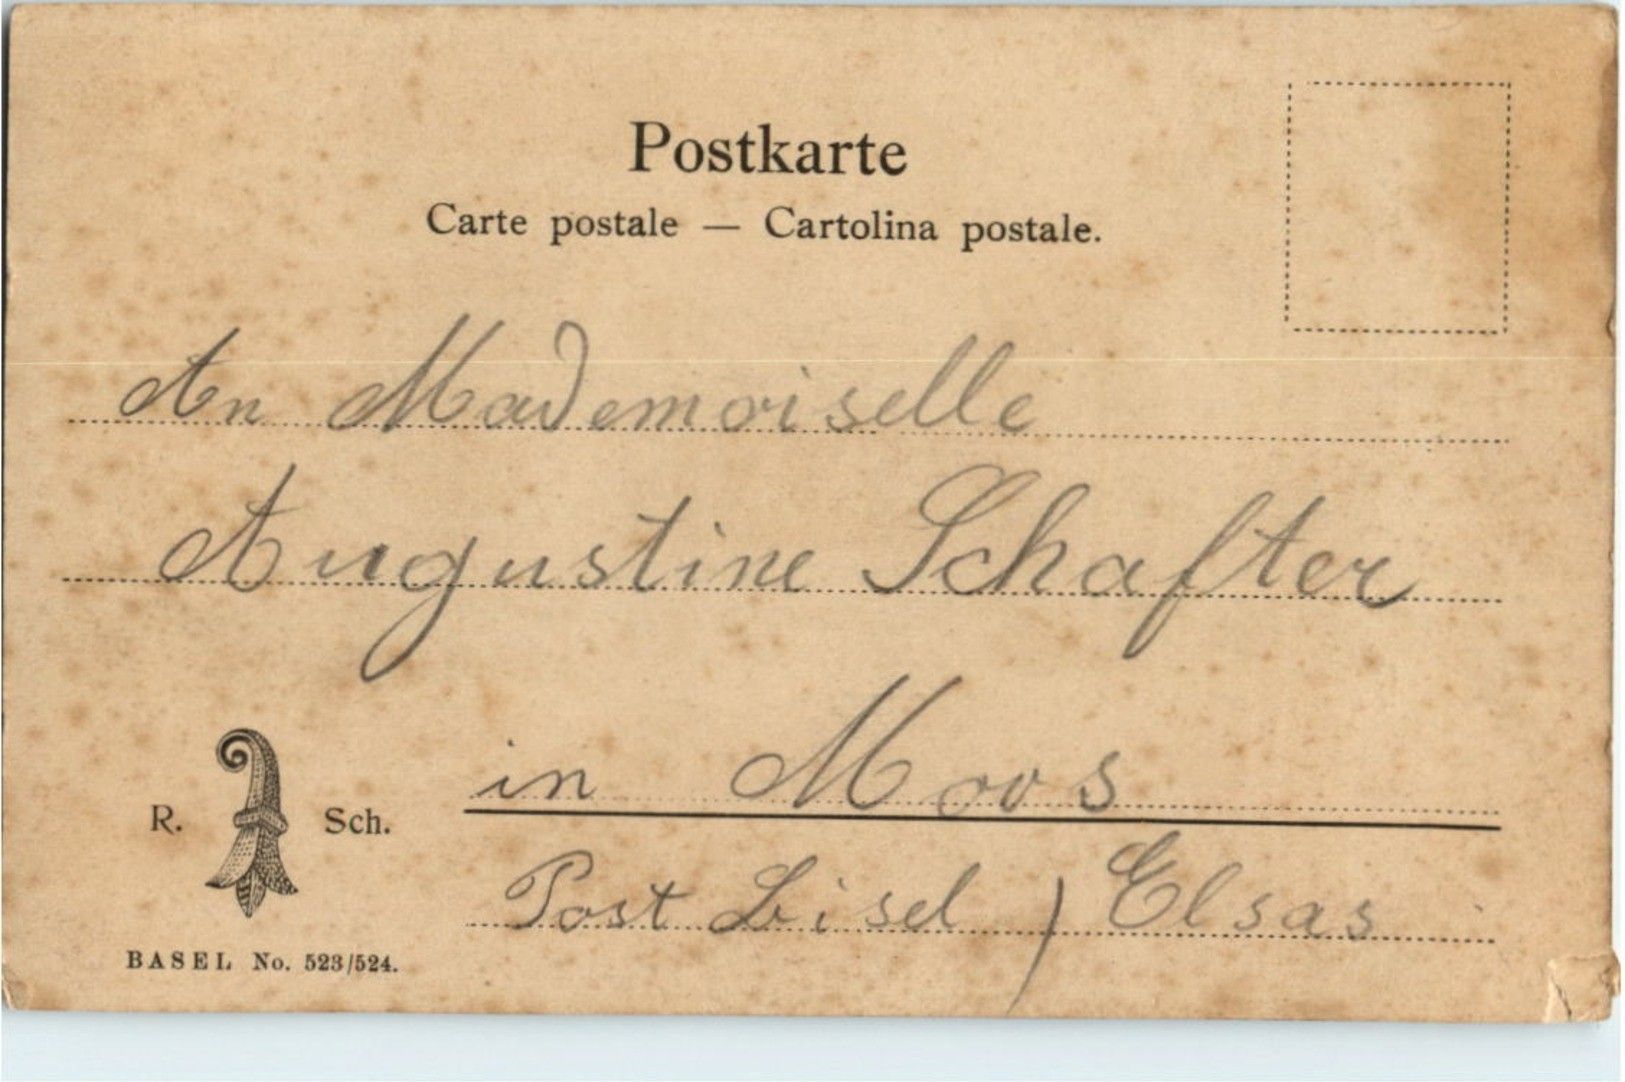 Postkarte
Carte postale — Cartolina postale.
An Mademoiselle
Augustine Schafter
in Moos
Post Lisel ) Elsas
R. Sch.
BASEL No. 523/524.